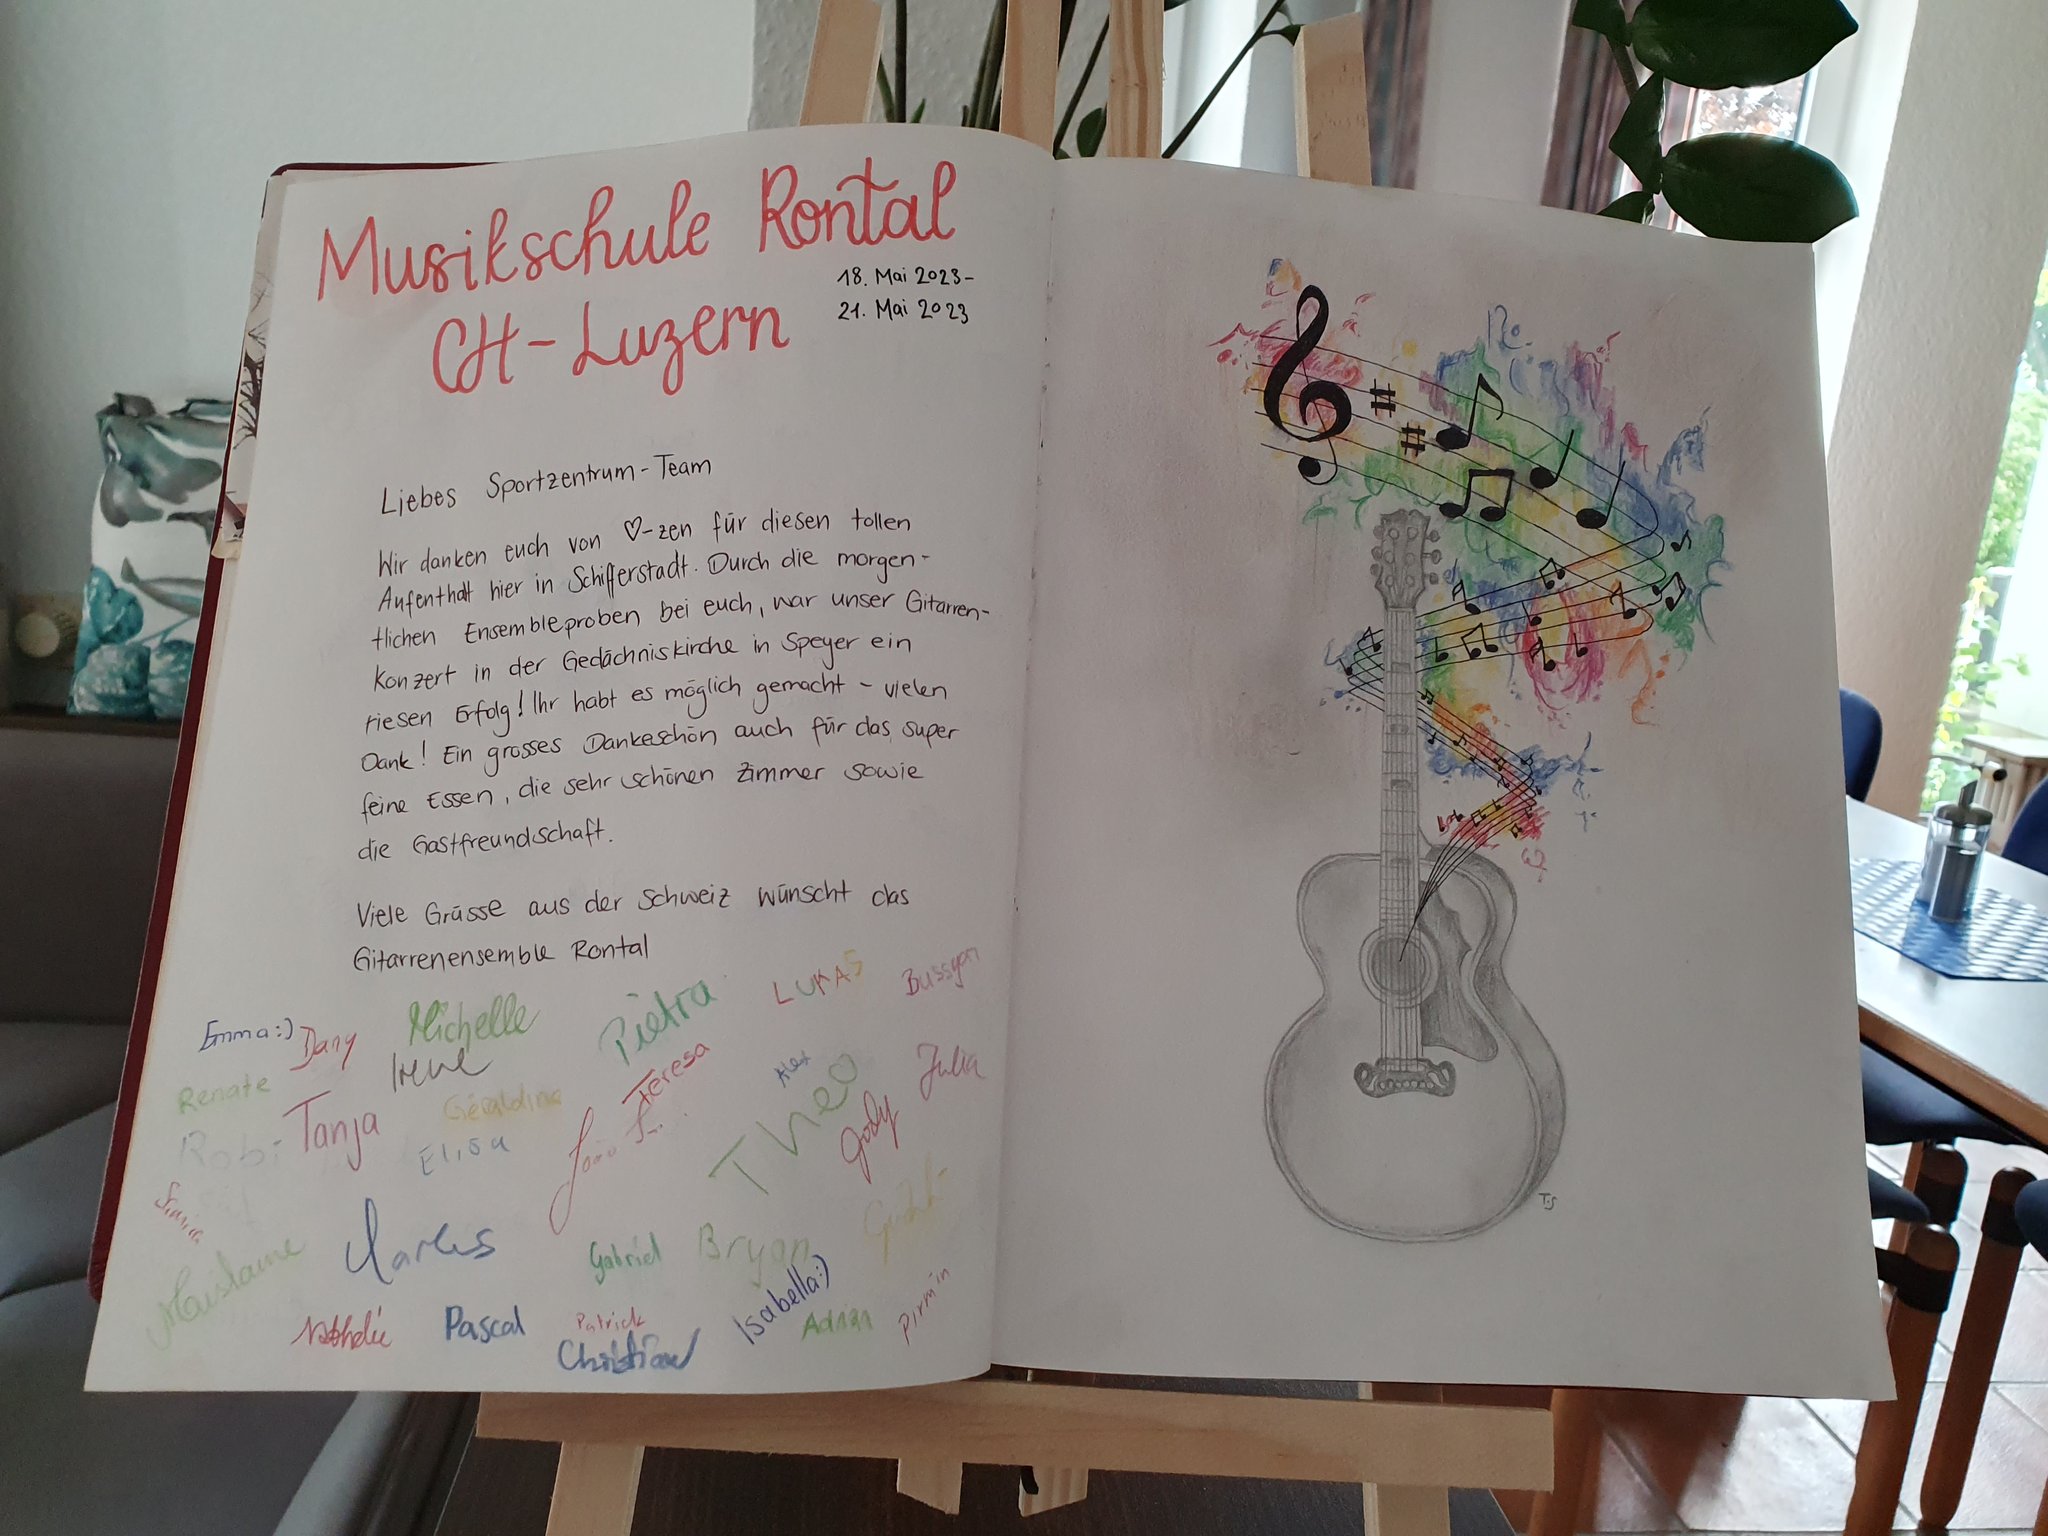 Musikschule Rontal
CH-Luzern
18. Mai 2023-
21. Mai 2023
Liebes Sportzentrum-Team
Wir danken euch von ♡-zen für diesen tollen
Aufenthalt hier in Schifferstadt. Durch die morgen-
tlichen Ensembleproben bei euch, war unser Gitarren-
konzert in der Gedächniskirche in Speyer ein
riesen Erfolg! Ihr habt es möglich gemacht - vielen
Dank! Ein grosses Dankeschön auch für das super
feine Essen, die sehr schönen Zimmer sowie
die Gastfreundschaft.
Viele Grüsse aus der Schweiz wünscht das
Gitarrenensemble Rontal
Emma:) Dany Michelle Pietra LUKAS
Renate Irene Teresa Alex Julia
Robi Tanja Géraldine Elisa Theo Jody
Markus Gabriel Bryan
Nathalie Pascal Patrick Isabella:) Adrian Pirmin
Christian
T.S